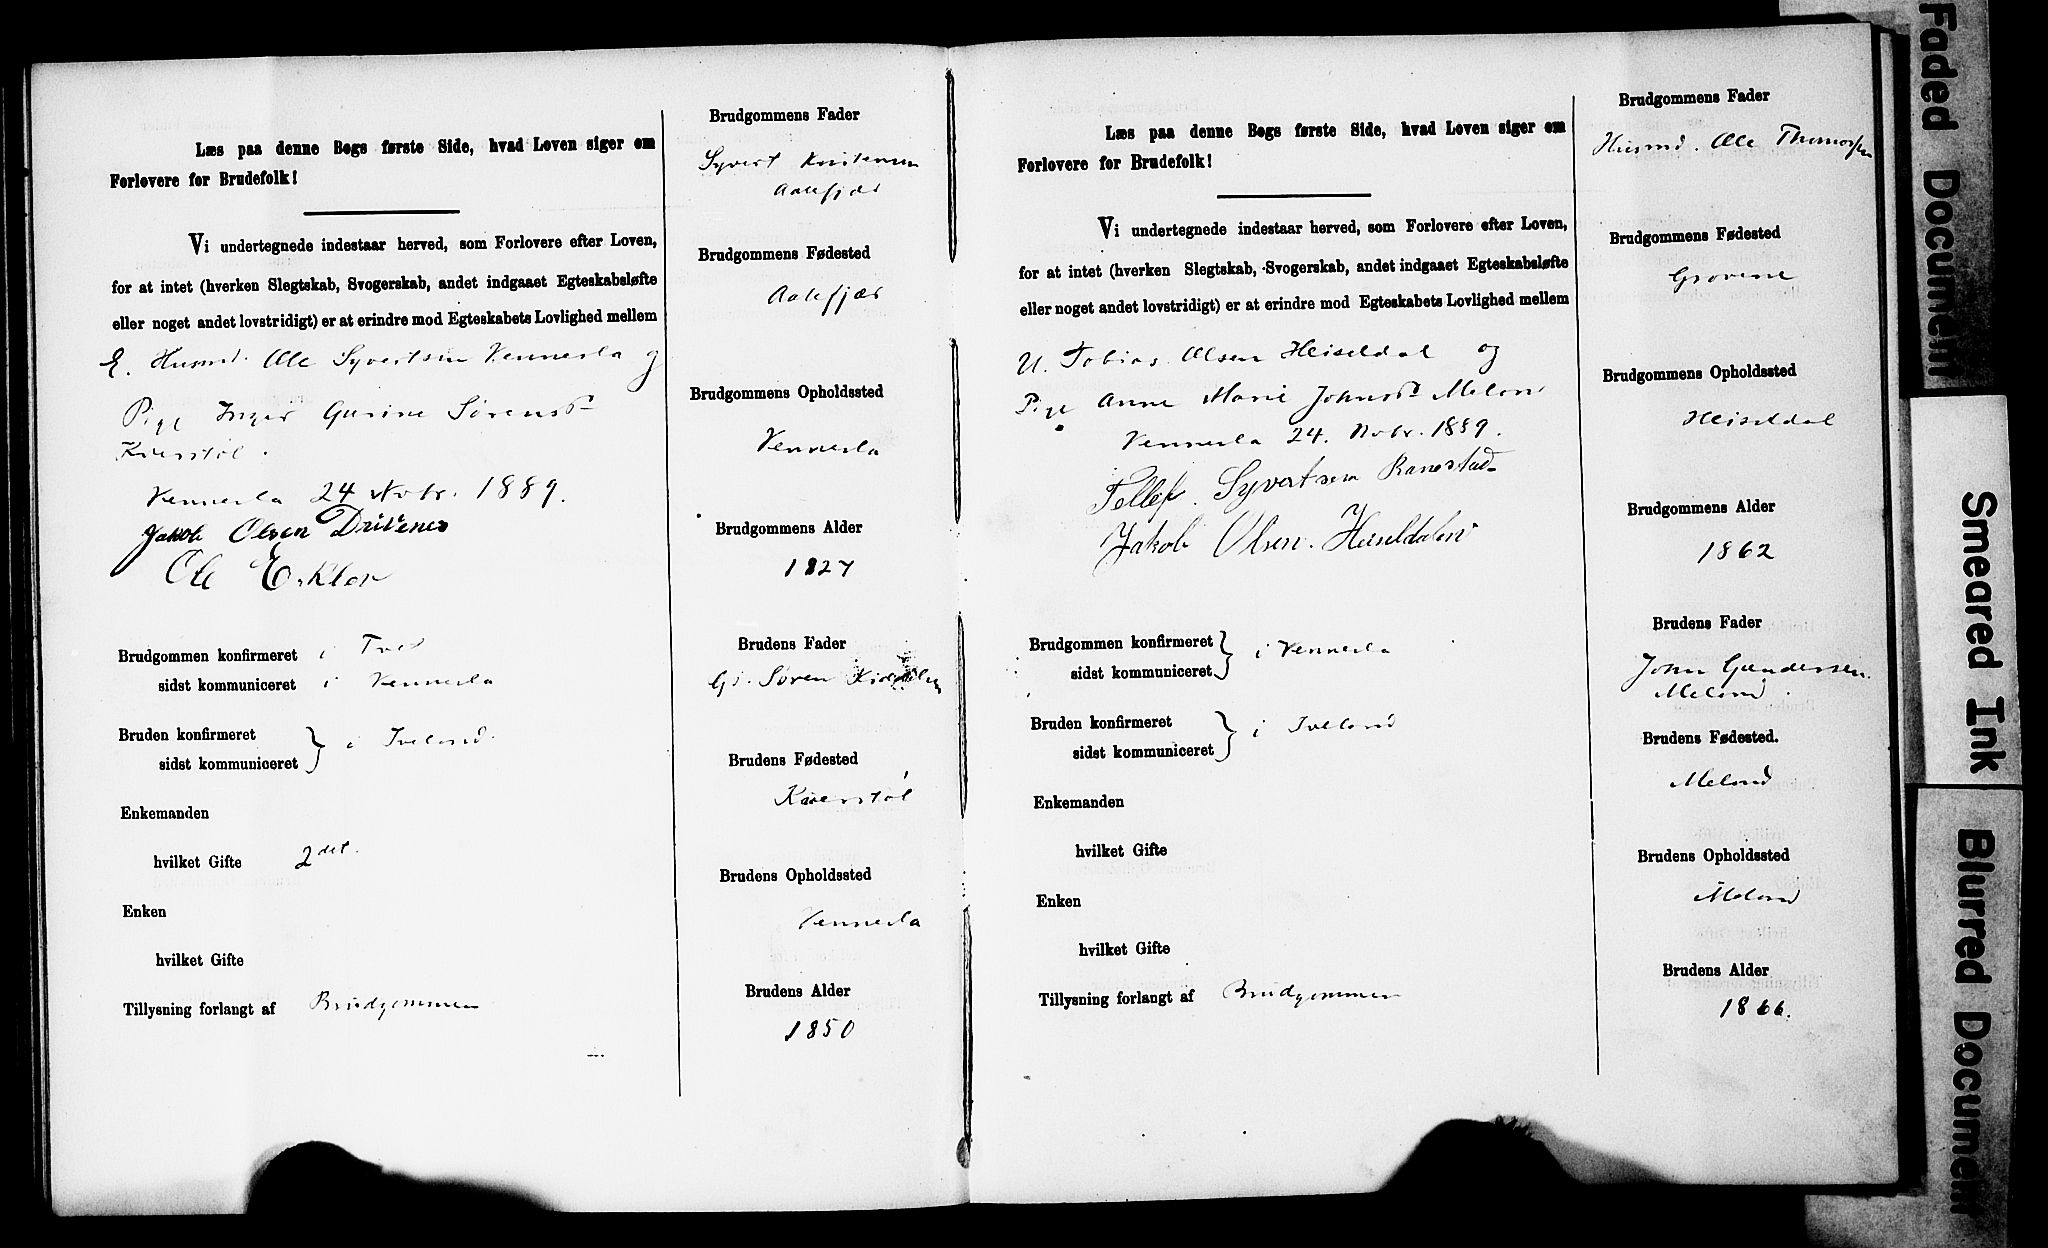 Læs paa denne Bogs første Side, hvad Loven siger om
Forlovere for Brudefolk!
Vi undertegnede indestaar herved, som Forlovere efter Loven,
for at intet (hverken Slegtskab, Svogerskab, andet indgaaet Egteskabsløfte
eller noget andet lovstridigt) er at erindre mod Egteskabets Lovlighed mellem
E. Husmd. Ole Syvertsen Vennesla og
Pige Inger Gurine Sørensd.
Vennesla 24 Novbr. 1889.
Jakob Olsen Drivenes
Ole
Brudgommen konfirmeret i Tvet
sidst kommuniceret i Vennesla
Bruden konfirmeret
sidst kommuniceret } i Iveland.
Enkemanden
hvilket Gifte 2det.
Enken
hvilket Gifte
Tillysning forlangt af Brudgommen
Brudgommens Fader
Syvert
Aalefjær
Brudgommens Fødested
Aalefjær
Brudgommens Opholdssted
Vennesla
Brudgommens Alder
1827
Brudens Fader
Søren
Brudens Fødested
Brudens Opholdssted
Vennesla
Brudens Alder
1850
Læs paa denne Bogs første Side, hvad Loven siger om
Forlovere for Brudefolk!
Vi undertegnede indestaar herved, som Forlovere efter Loven,
for at intet (hverken Slegtskab, Svogerskab, andet indgaaet Egteskabsløfte
eller noget andet lovstridigt) er at erindre mod Egteskabets Lovlighed mellem
U. Tobias Olsen Heiseldal og
Pige Anne Marie Johnsd. Meland
Vennesla 24. Novbr. 1889.
Tellef Syvertsen
Jakob Olsen Heiseldalen
Brudgommen konfirmeret
sidst kommuniceret } i Vennesla
Bruden konfirmeret
sidst kommuniceret } i Iveland
Enkemanden
hvilket Gifte
Enken
hvilket Gifte
Tillysning forlangt af Brudgommen
Brudgommens Fader
Husmd. Ole Thomassen
Brudgommens Fødested
Grovene
Brudgommens Opholdssted
Heiseldal
Brudgommens Alder
1862
Brudens Fader
John Gundersen
Meland
Brudens Fødested.
Meland
Brudens Opholdssted
Meland
Brudens Alder
1866.
Faded Document
Smeared Ink
Blurred Document